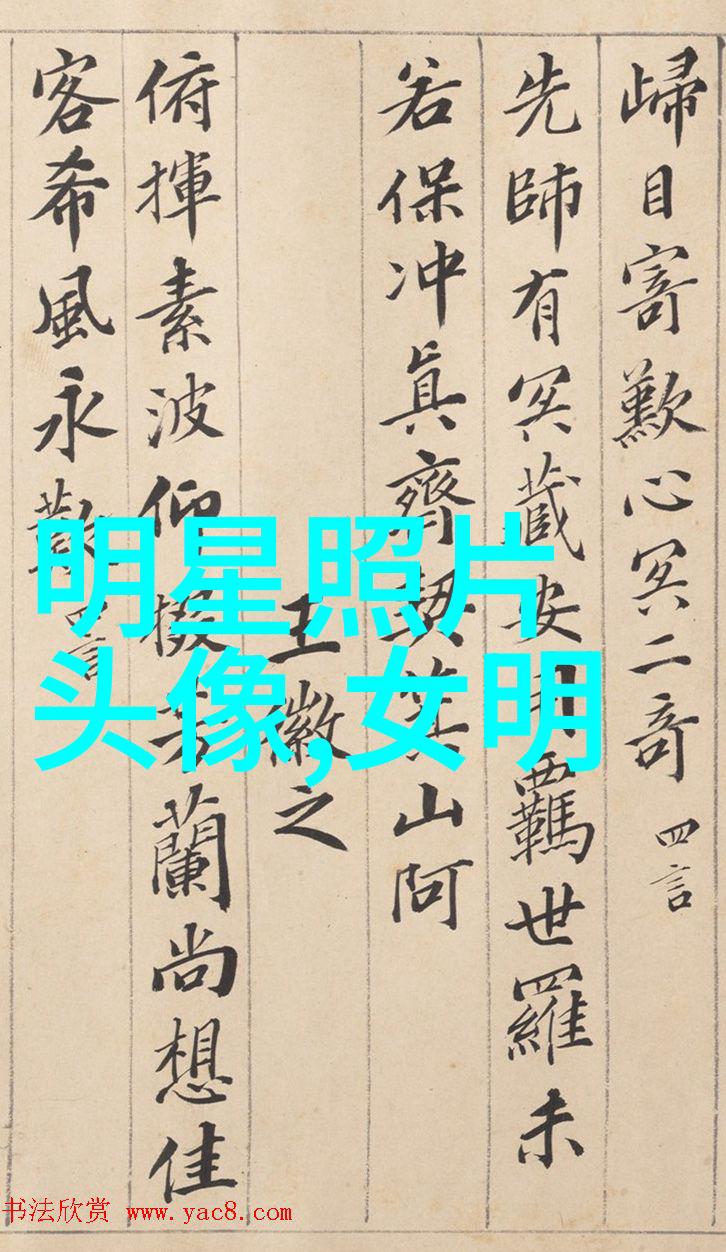 歸目寄歎心冥二奇 四言
先師有冥藏安用羈世羅未
若保冲真齊契箕山阿
王徽之
俯揮素波仰掇芳蘭尚想佳
客希風永歎 四言
明星照片
头像,女明
书法欣赏 www.yac8.com